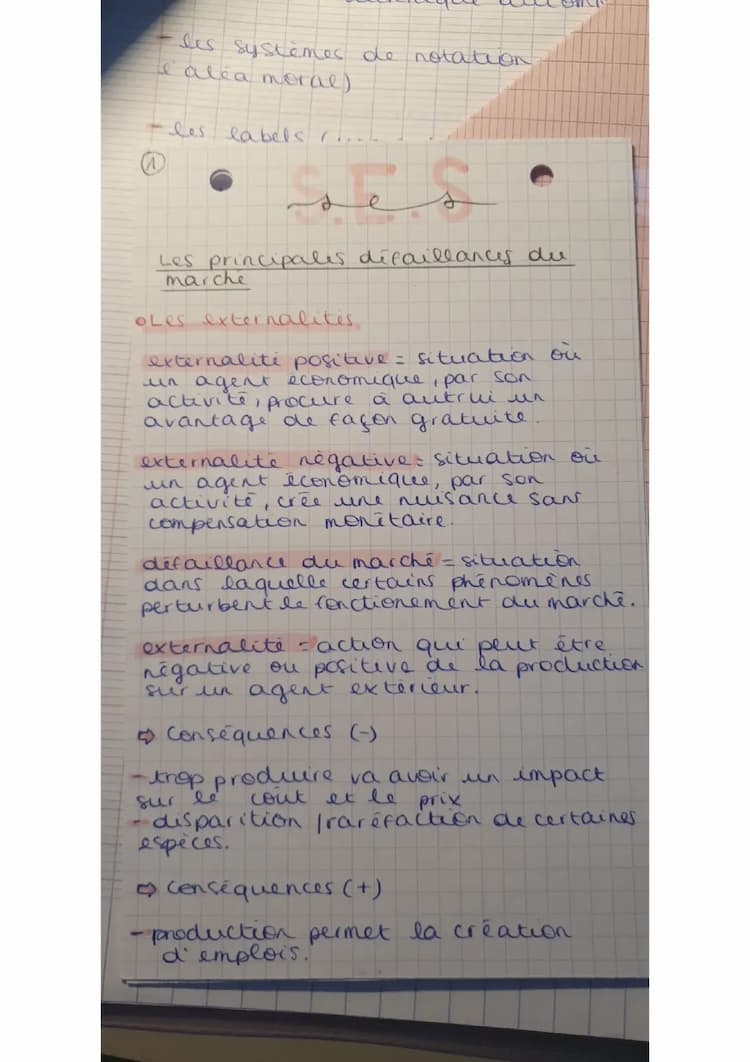 - les systèmes de notation
(aléa moral)
- les labels, ....
①
S.E.S
ses
Les principales défaillances du
marché
Les externalités
externalité positive = situation où
un agent économique, par son
activité, procure à autrui un
avantage de façon gratuite.
externalité négative = situation où
un agent économique, par son
activité, crée une nuisance sans
compensation monétaire.
défaillance du marché = situation
dans laquelle certains phénomènes
perturbent le fonctionement du marché.
externalité = action qui peut être
négative ou positive de la production
sur un agent extérieur.
⇨ Conséquences (-)
- trop produire va avoir un impact
sur le coût et le prix
- disparition / raréfaction de certaines
espèces.
⇨ Conséquences (+)
- production permet la création
d'emplois.